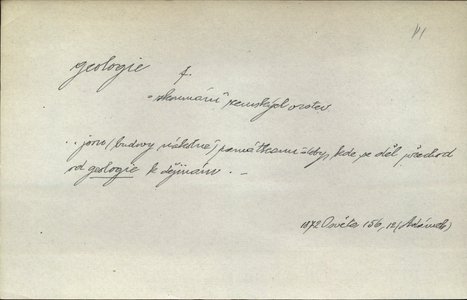 VI
geologie f.
"skoumání" zemských vrstev
.. jsou / budovy nákolné / památkami doby, kde se děl přechod
od geologie k dějinám. –
1872 Osvěta 156, 12 (Adámek)